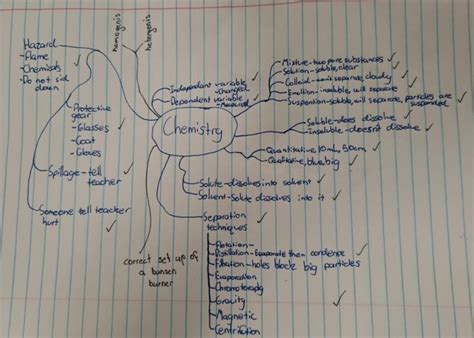 Hazard
-flame
-Chemicals
-Do not sit
down
Protective
gear
-Glasses
-Coat
-Gloves
Spillage-tell
teacher
Someone tell teacher
hurt
homogenis
hetergenis
Independant variable
-changed
Dependant variable
-Measured
Chemistry
Mixture-two pure substances
Solution-soluble, clear
Colloid-won't separate, cloudy
Emultion-insoluble, will separate
Suspention-soluble, will separate, particles are
suspended
Soluble-does dissolve
Insoluble-doesn't dissolve
Quantitative, 10mL, 50cm
Qualitative, blue, big
Solute-dissolves into solvent
Solvent-Solute dissolves into it
Separation
techniques
-flotation-
-Distillation-Evaporate then condence
-Filtration-holes block big particles
-Evaporation
-Chromotorapdy
-Gravity
-Magnetic
-Centrifution
correct set up of
a bunsen
burner